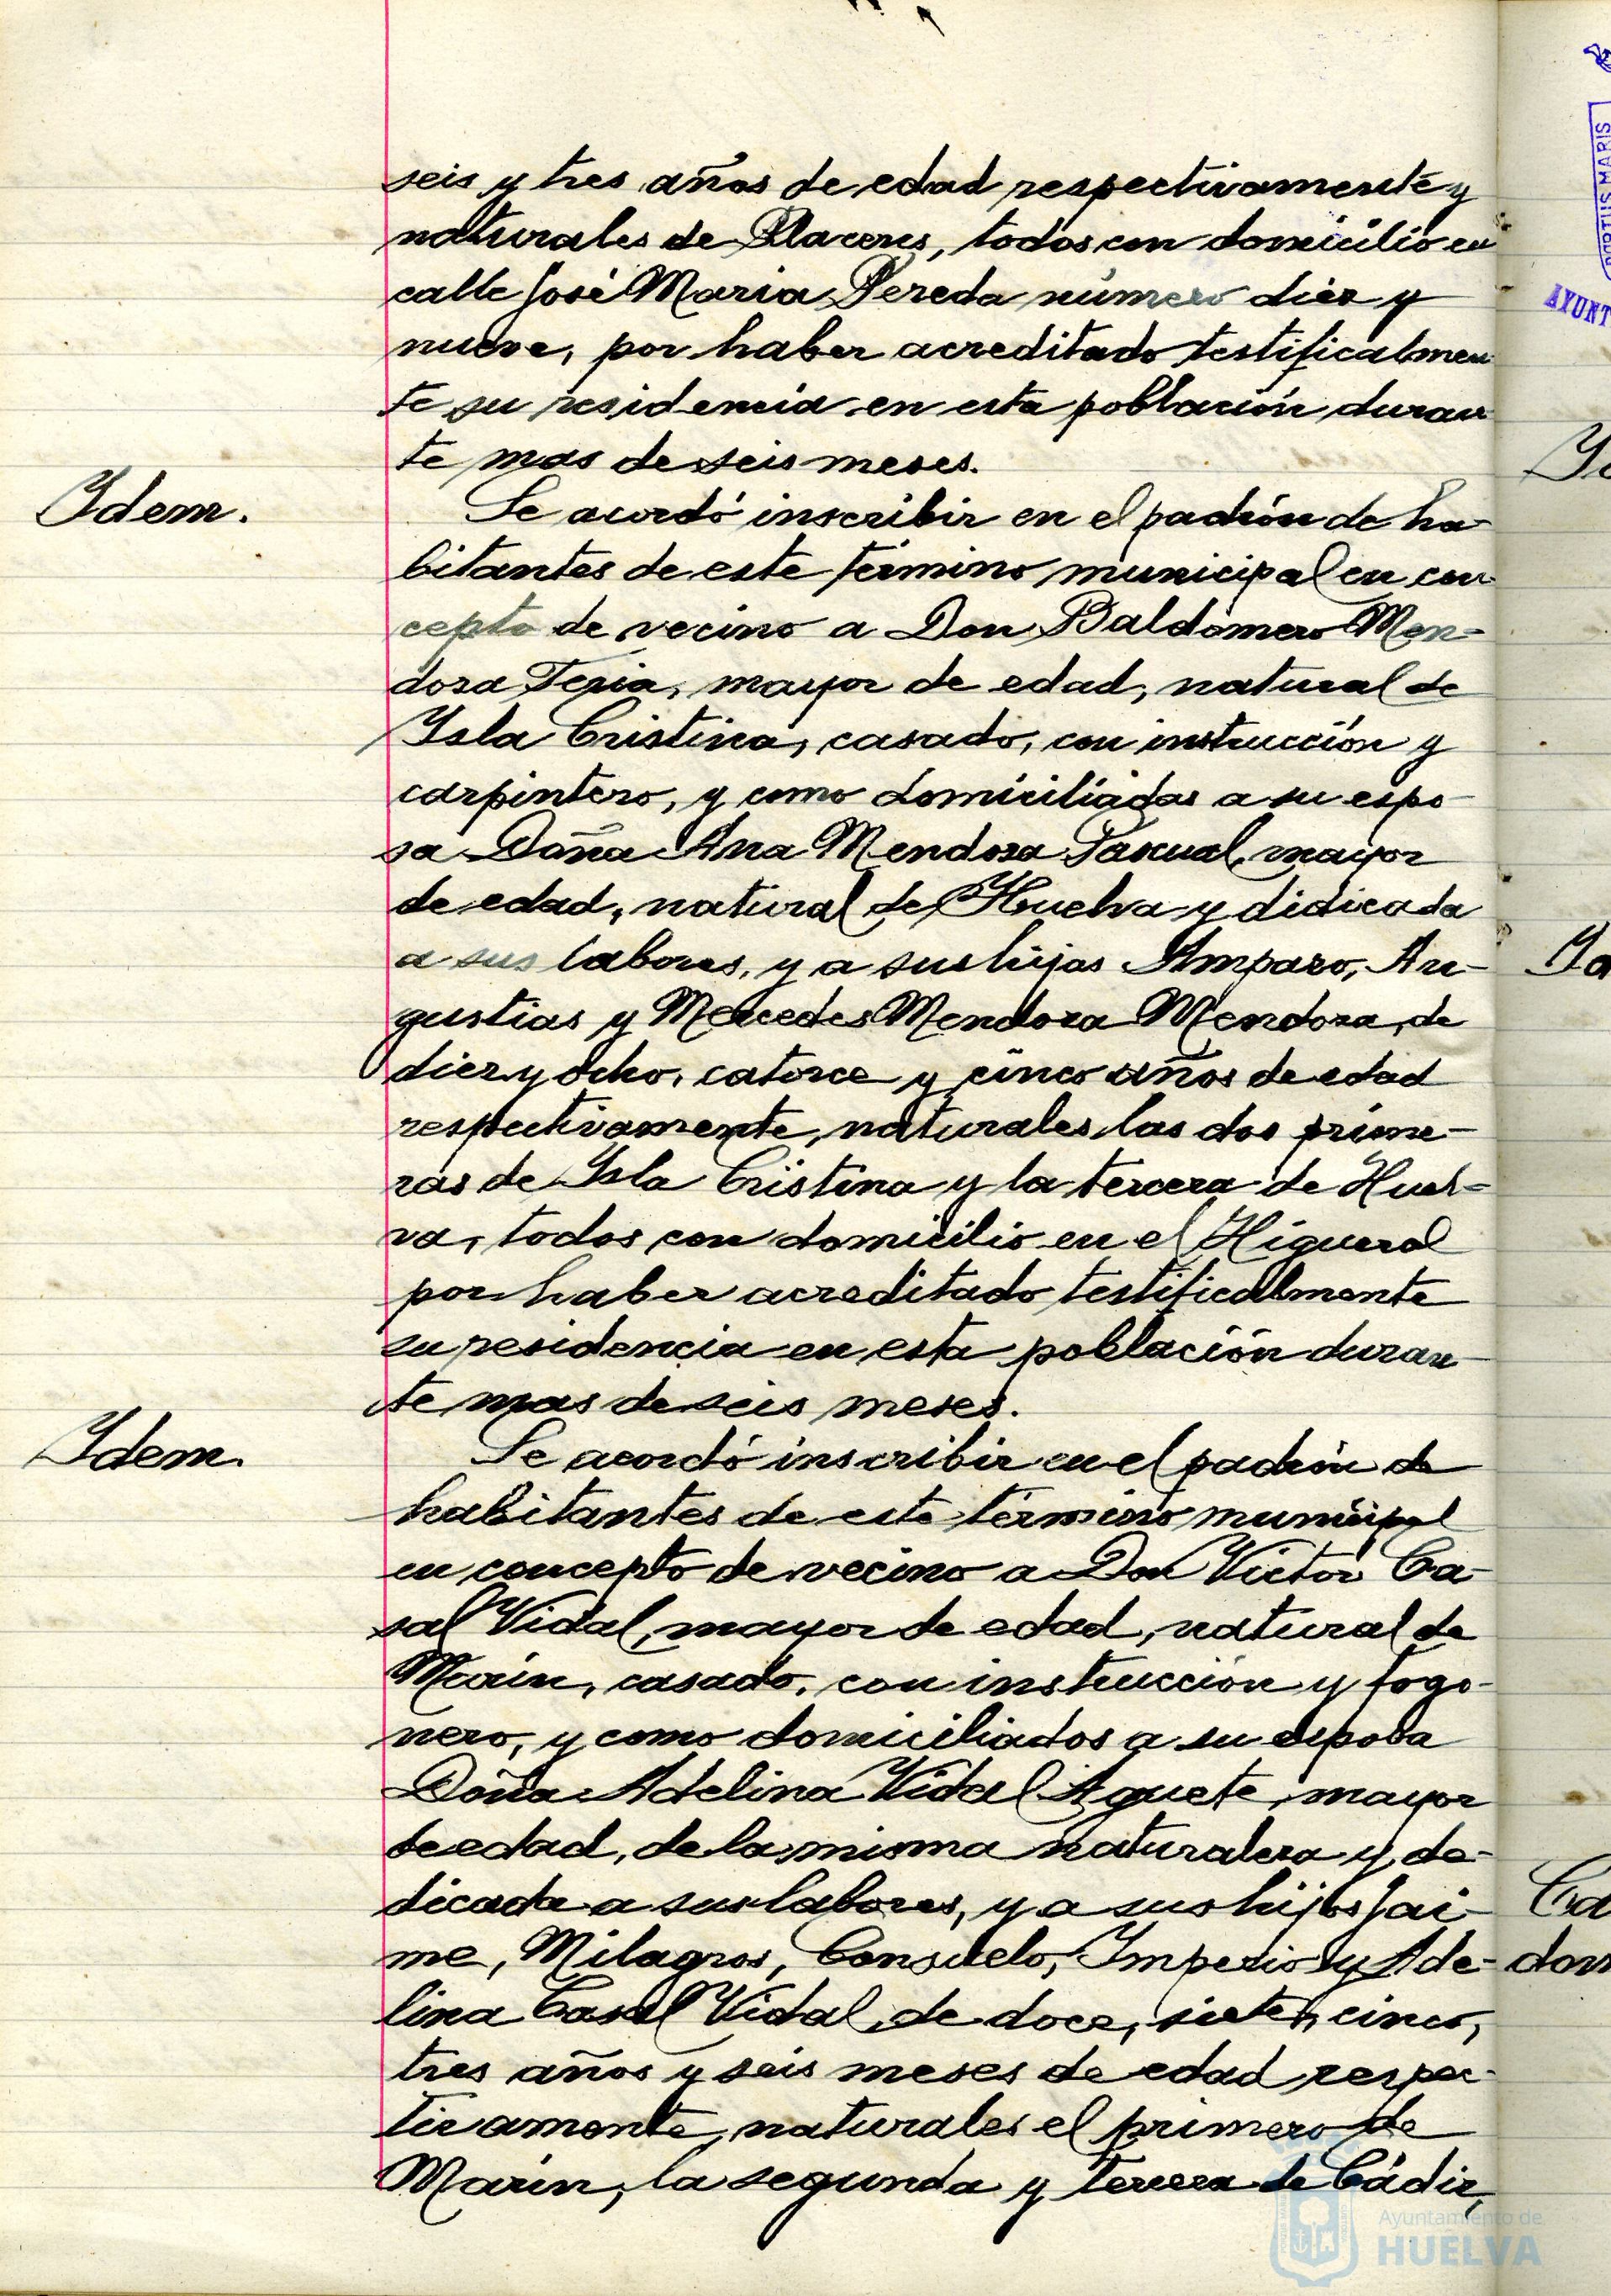 seis y tres años de edad respectivamente y
naturales de Placeres, todos con domicilio en
calle José Maria Pereda número diez y
nueve, por haber acreditado testificalmen
te su residencia en esta población duran
te mas de seis meses.
Idem.
Se acordó inscribir en el padrón de ha-
bitantes de este término municipal en con-
cepto de vecino a Don Baldomero Men-
doza Feria, mayor de edad, natural de
Isla Cristina, casado, con instrucción y
carpintero, y como domiciliadas a su espo-
sa Doña Ana Mendoza Pascual, mayor
de edad, natural de Huelva y didicada
a sus labores, y a sus hijas Amparo, An-
gustias y Mercedes Mendoza Mendoza, de
diez y ocho, catorce y cinco años de edad
respectivamente, naturales las dos prime-
ras de Isla Cristina y la tercera de Huel-
va, todos con domicilio en el Higueral
por haber acreditado testificalmente
su residencia en esta población duran-
te mas de seis meses.
Idem.
Se acordó inscribir en el padrón de
habitantes de este término municipal
en concepto de vecino a Don Victor Ca-
sal Vidal, mayor de edad, natural de
Marin, casado, con instrucción y fogo-
nero, y como domiciliados a su esposa
Doña Adelina Vidal Aguete, mayor
de edad, de la misma naturaleza y de-
dicada a sus labores, y a sus hijos Jai-
me, Milagros, Consuelo, Imperio y Ade-
lina Casal Vidal, de doce, siete, cinco,
tres años y seis meses de edad respec-
tivamente, naturales el primero de
Marin, la segunda y tercera de Cádiz,
PORTUS MARIS
AYUNT
Ayuntamiento de
HUELVA